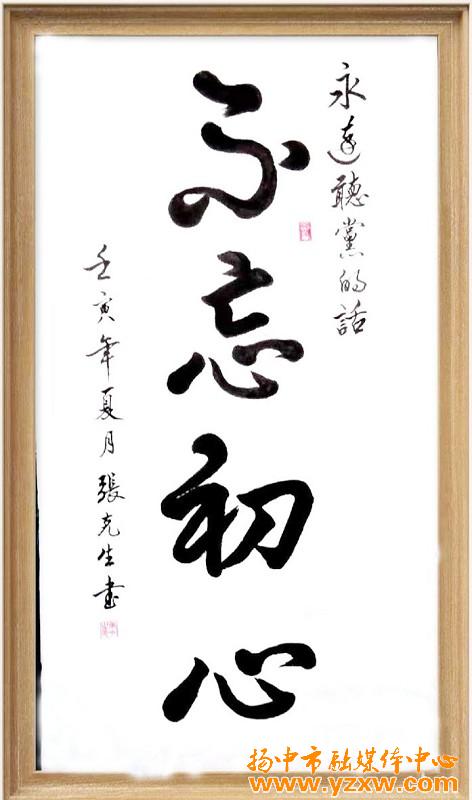 永远聽黨的話
不忘初心
壬寅年夏月張克生书
扬中市融媒体中心
www.yzxw.com